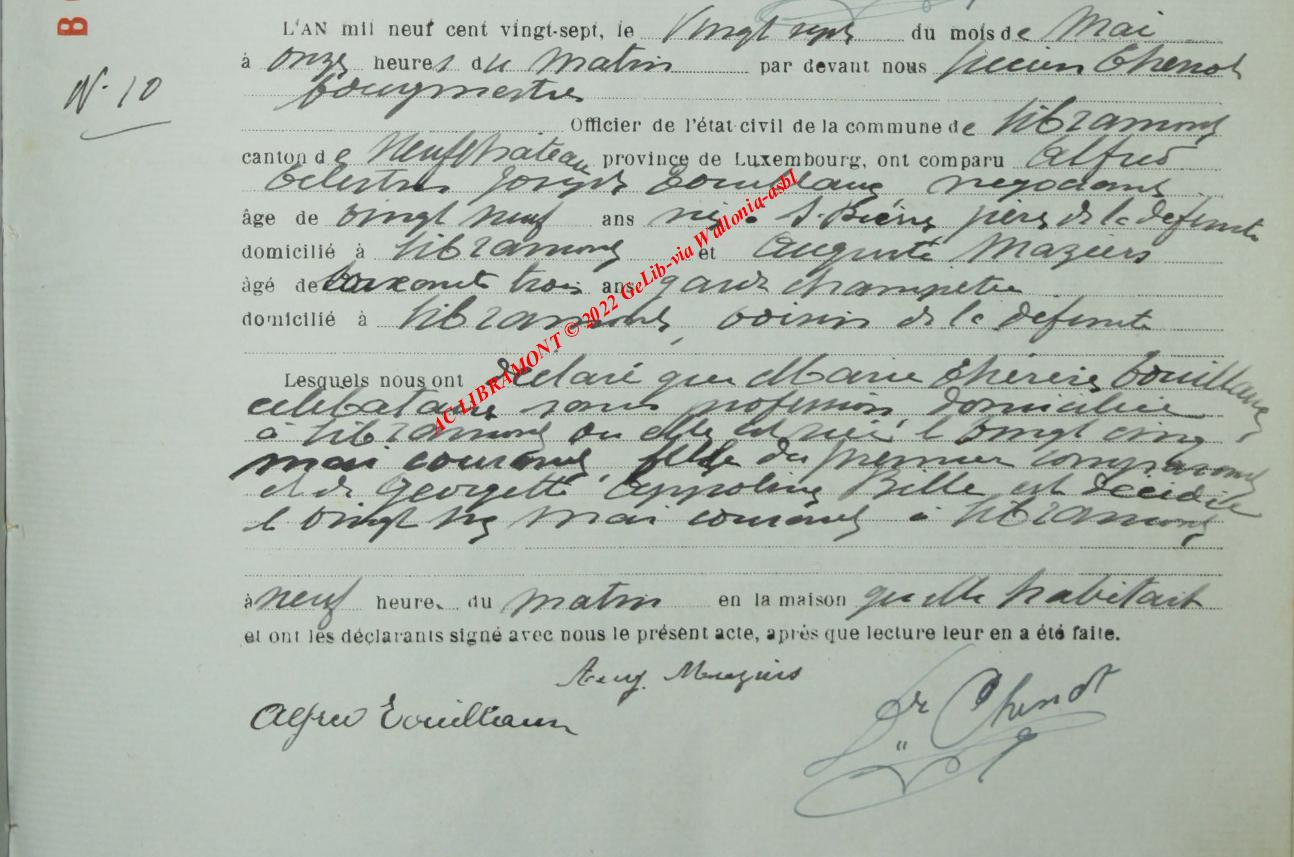 B
N° 10
L'AN mil neuf cent vingt-sept, le Vingt sept du mois de Mai
à onze heures du matin par devant nous Lucien Chenot
bourgmestre
Officier de l'état-civil de la commune de Libramont
canton de Neufchateau province de Luxembourg, ont comparu Alfred
Celestin Joseph négociant
âge de vingt neuf ans né à S. Pierre père de la defunte
domicilié à Libramont et Auguste Maziers
âgé de soixante trois ans garde champetre
domicilié à Libramont, voisin de la defunte
Lesquels nous ont déclaré que Marie Thérèse
celibataire sans profession domiciliée
à Libramont ou elle est née le vingt cinq
mai courant, fille du premier comparant
et de Georgette Appoline Bille est décédée
le vingt six mai courant à Libramont
à neuf heure. du matin en la maison quelle habitait
et ont les déclarants signé avec nous le présent acte, après que lecture leur en a été faite.
Aug. Maziers
Alfred
Dr Chenot
AC LIBRAMONT © 2022 GeLib-via Wallonia-asbl